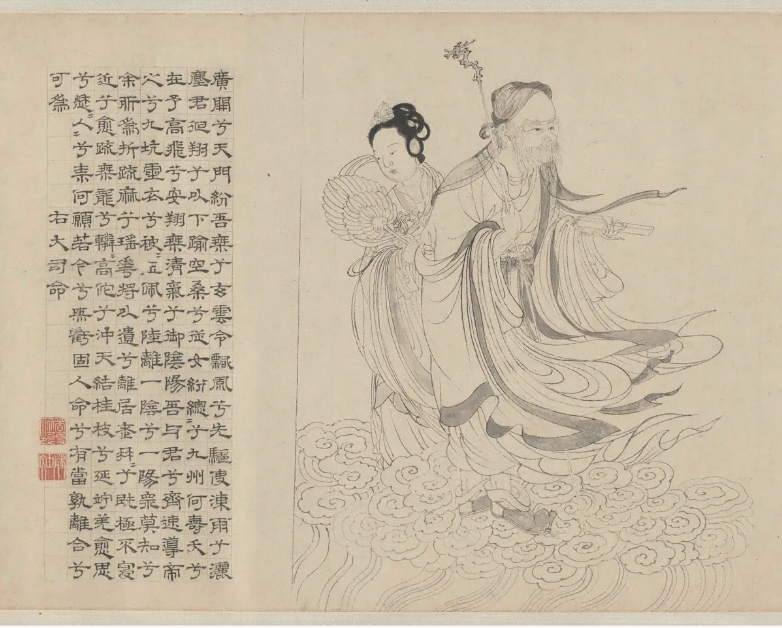 廣開兮天門紛吾乘兮玄雲令飄風兮先驅使涷雨兮灑
塵君迴翔兮以下踰空桑兮從女紛總〻兮九州何壽夭兮
在予高飛兮安翔乘清氣兮御陰陽吾与君兮齊速導帝
之兮九坑靈衣兮被〻玉佩兮陸離一陰兮一陽衆莫知兮
余所為折疏麻兮瑤華將以遺兮離居老冉〻兮既極不寖
近兮愈疏乘龍兮轔〻高駝兮沖天結桂枝兮延竚羌愈思
兮愁〻人〻兮柰何願若今兮無虧固人命兮有當孰離合兮
可為
右大司命